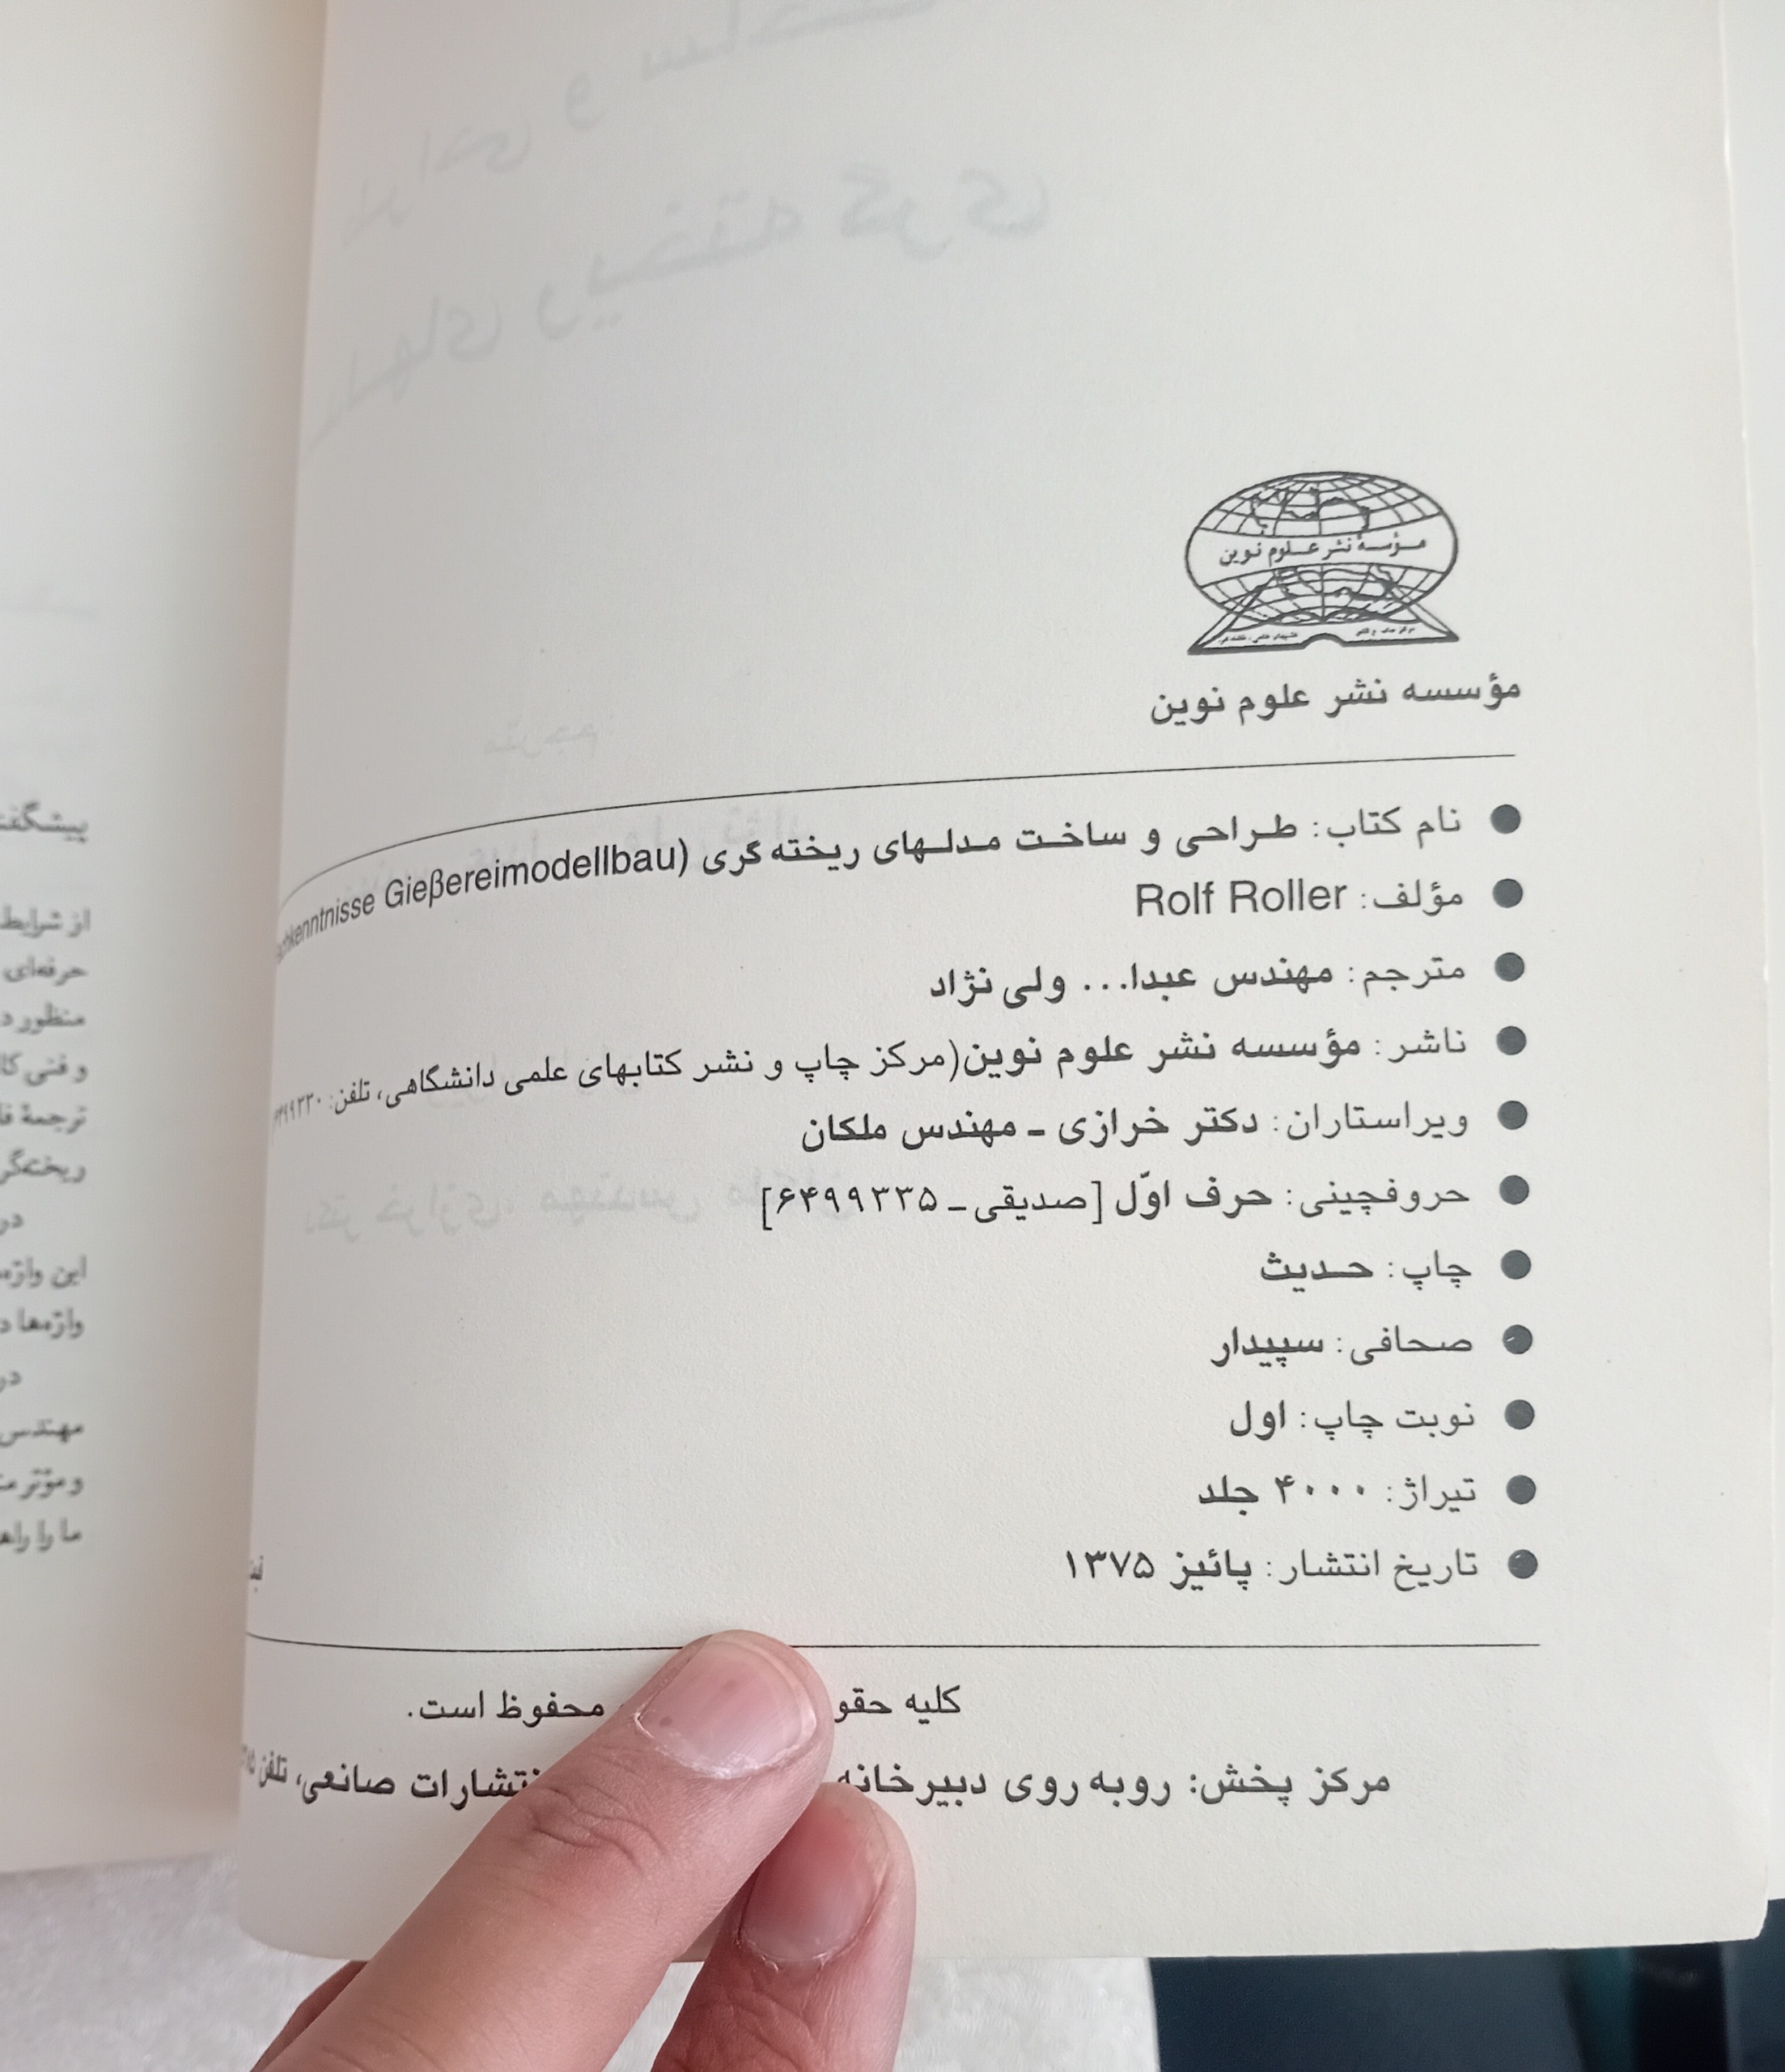 مؤسسه نشر علوم نوین
مؤسسه نشر علوم نوین
● نام کتاب: طراحی و ساخت مدلهای ریخته گری (Gießereimodellbau
● مؤلف: Rolf Roller
● مترجم: مهندس عبدا... ولی نژاد
● ناشر: مؤسسه نشر علوم نوین(مرکز چاپ و نشر کتابهای علمی دانشگاهی، تلفن:
● ویراستاران: دکتر خرازی ـ مهندس ملکان
● حروفچینی: حرف اوّل [صدیقی ـ ۶۴۹۹۳۳۵]
● چاپ: حدیث
● صحافی: سپیدار
● نوبت چاپ: اول
● تیراژ: ۴۰۰۰ جلد
● تاریخ انتشار: پائیز ۱۳۷۵
کلیه محفوظ است.
مرکز پخش: روبه روی دبیرخانه صانعی، تلفن
از شرایط
حرفه‌ای
منظور
و فنی
این
مهندس
ما را